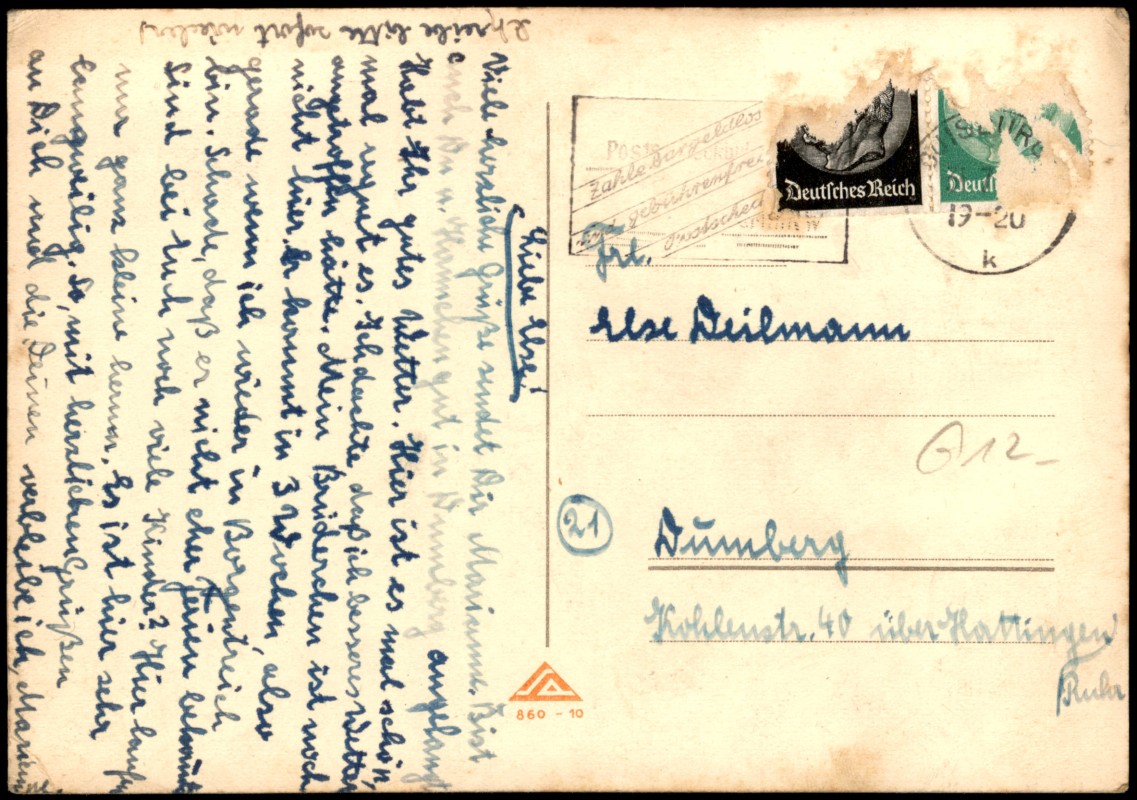 Liebe Else!
Viele herzliche Grüße sendet Dir Marianne. Bist
auch Du u. Hannchen gut in Dumberg angelangt
Habt Ihr gutes Wetter. Hier ist es mal schön,
mal regnet es. Ich dachte, daß ich besseres Wetter
angetroffen hätte. Mein Brüderchen ist noch
nicht hier. Er kommt in 3 Wochen, also
gerade wenn ich wieder in Borgentreich
bin. Schade, daß er nicht eher Ferien bekommt
Sind bei Euch noch viele Kinder? Hier laufen
nur ganz kleine herum. Es ist hier sehr
langweilig. So, mit herzlichen Grüßen
an Dich und die Deinen verbleibe ich, Marianne.
Schreibe bitte sofort wieder!
Zahle bargeldlos
und gebührenfrei
Postscheck
Deutsches Reich
Deut
19-20
k
Frl.
Else Deilmann
G12-
21
Dumberg
Kohlenstr. 40 über Hattingen
Ruhr
860-10